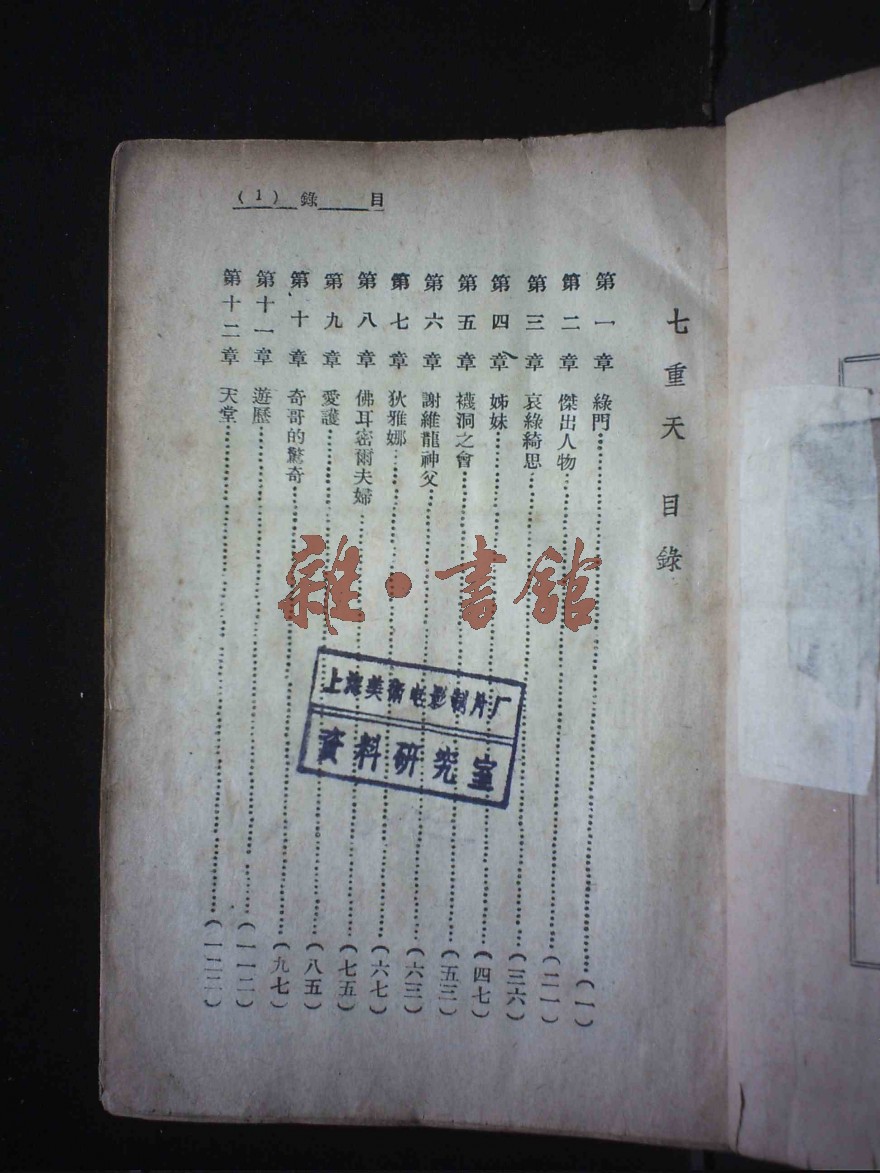 目錄(1)
七重天 目錄
第一章 綠門……(一)
第二章 傑出人物……(二一)
第三章 哀綠綺思……(三六)
第四章 姊妹……(四七)
第五章 襪洞之會……(五三)
第六章 謝維龍神父……(六三)
第七章 狄雅娜……(六七)
第八章 佛耳密爾夫婦……(七五)
第九章 愛護……(八五)
第十章 奇哥的驚奇……(九七)
第十一章 遊歷……(一一二)
第十二章 天堂……(一二二)
雜·書館
上海美術电影制片厂
資料研究室